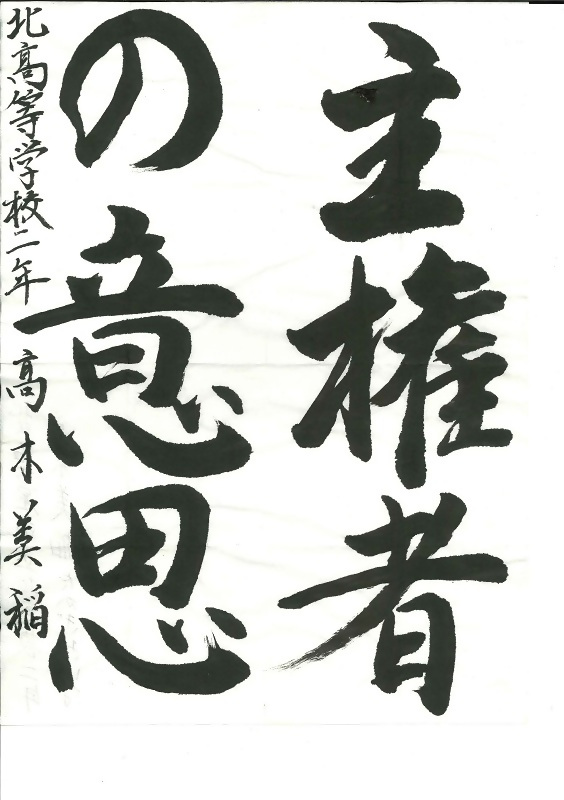 主権者
の意思
北高等学校二年 高木美稲